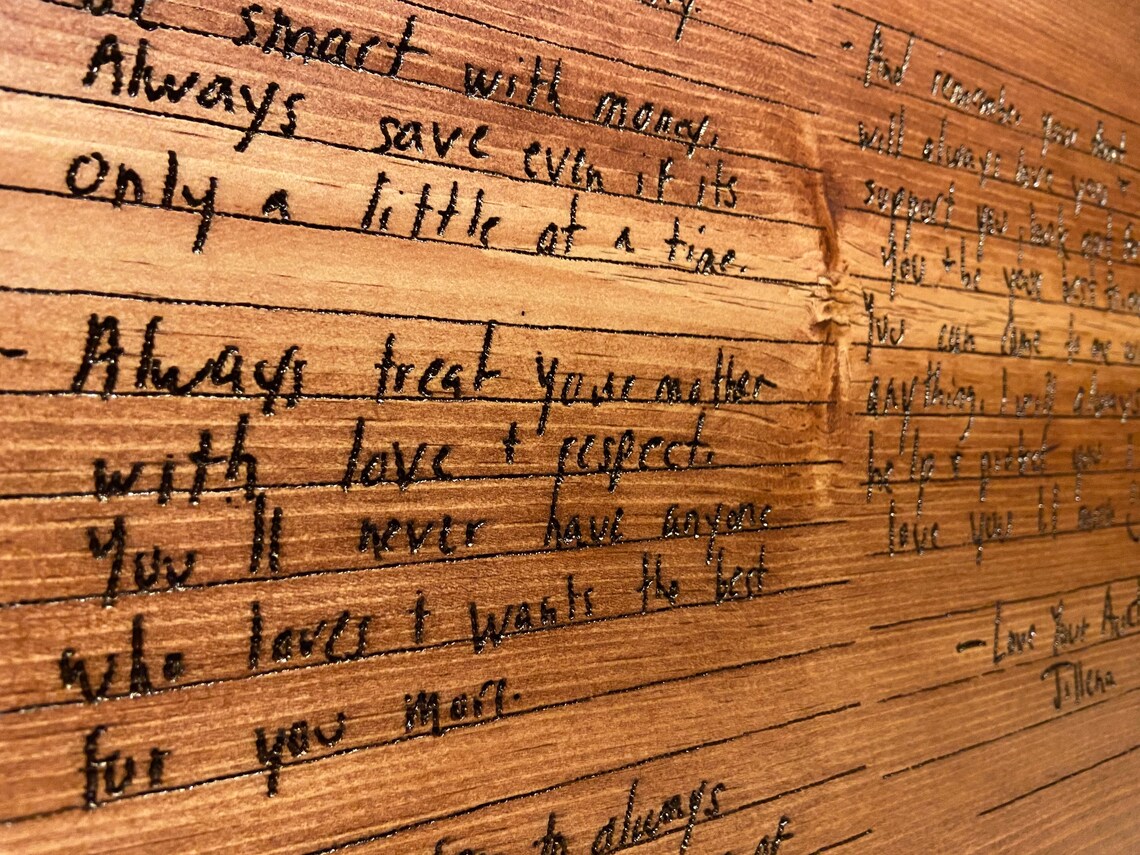 be smart with money.
Always save even if its
only a little at a time.
- Always treat your mother
with love + respect.
You'll never have anyone
who loves + wants the best
for you more.
to always
- And remember your Aunt
will always love you +
support you, look out
You + be your best
You can come to me
anything, I will always
help + protect you
love you
- Love Your
Jillena